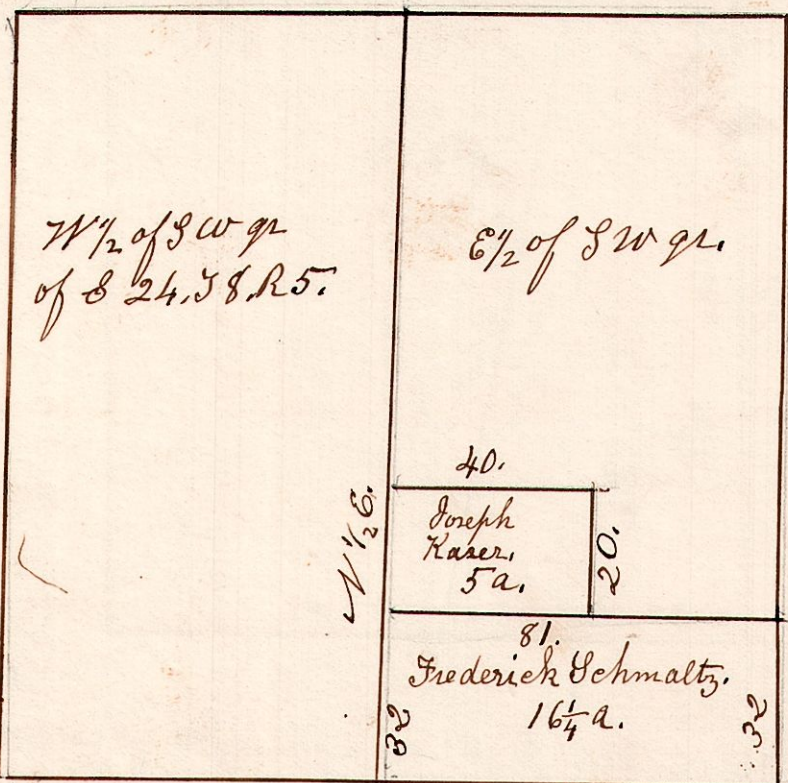 W 1/2 of S W qr
of S 24. T 8. R 5.
E 1/2 of S W qr.
N 1/2 E.
40.
Joseph
Kaser.
5 a.
20.
81.
Frederick Schmaltz.
16 1/4 a.
32
32